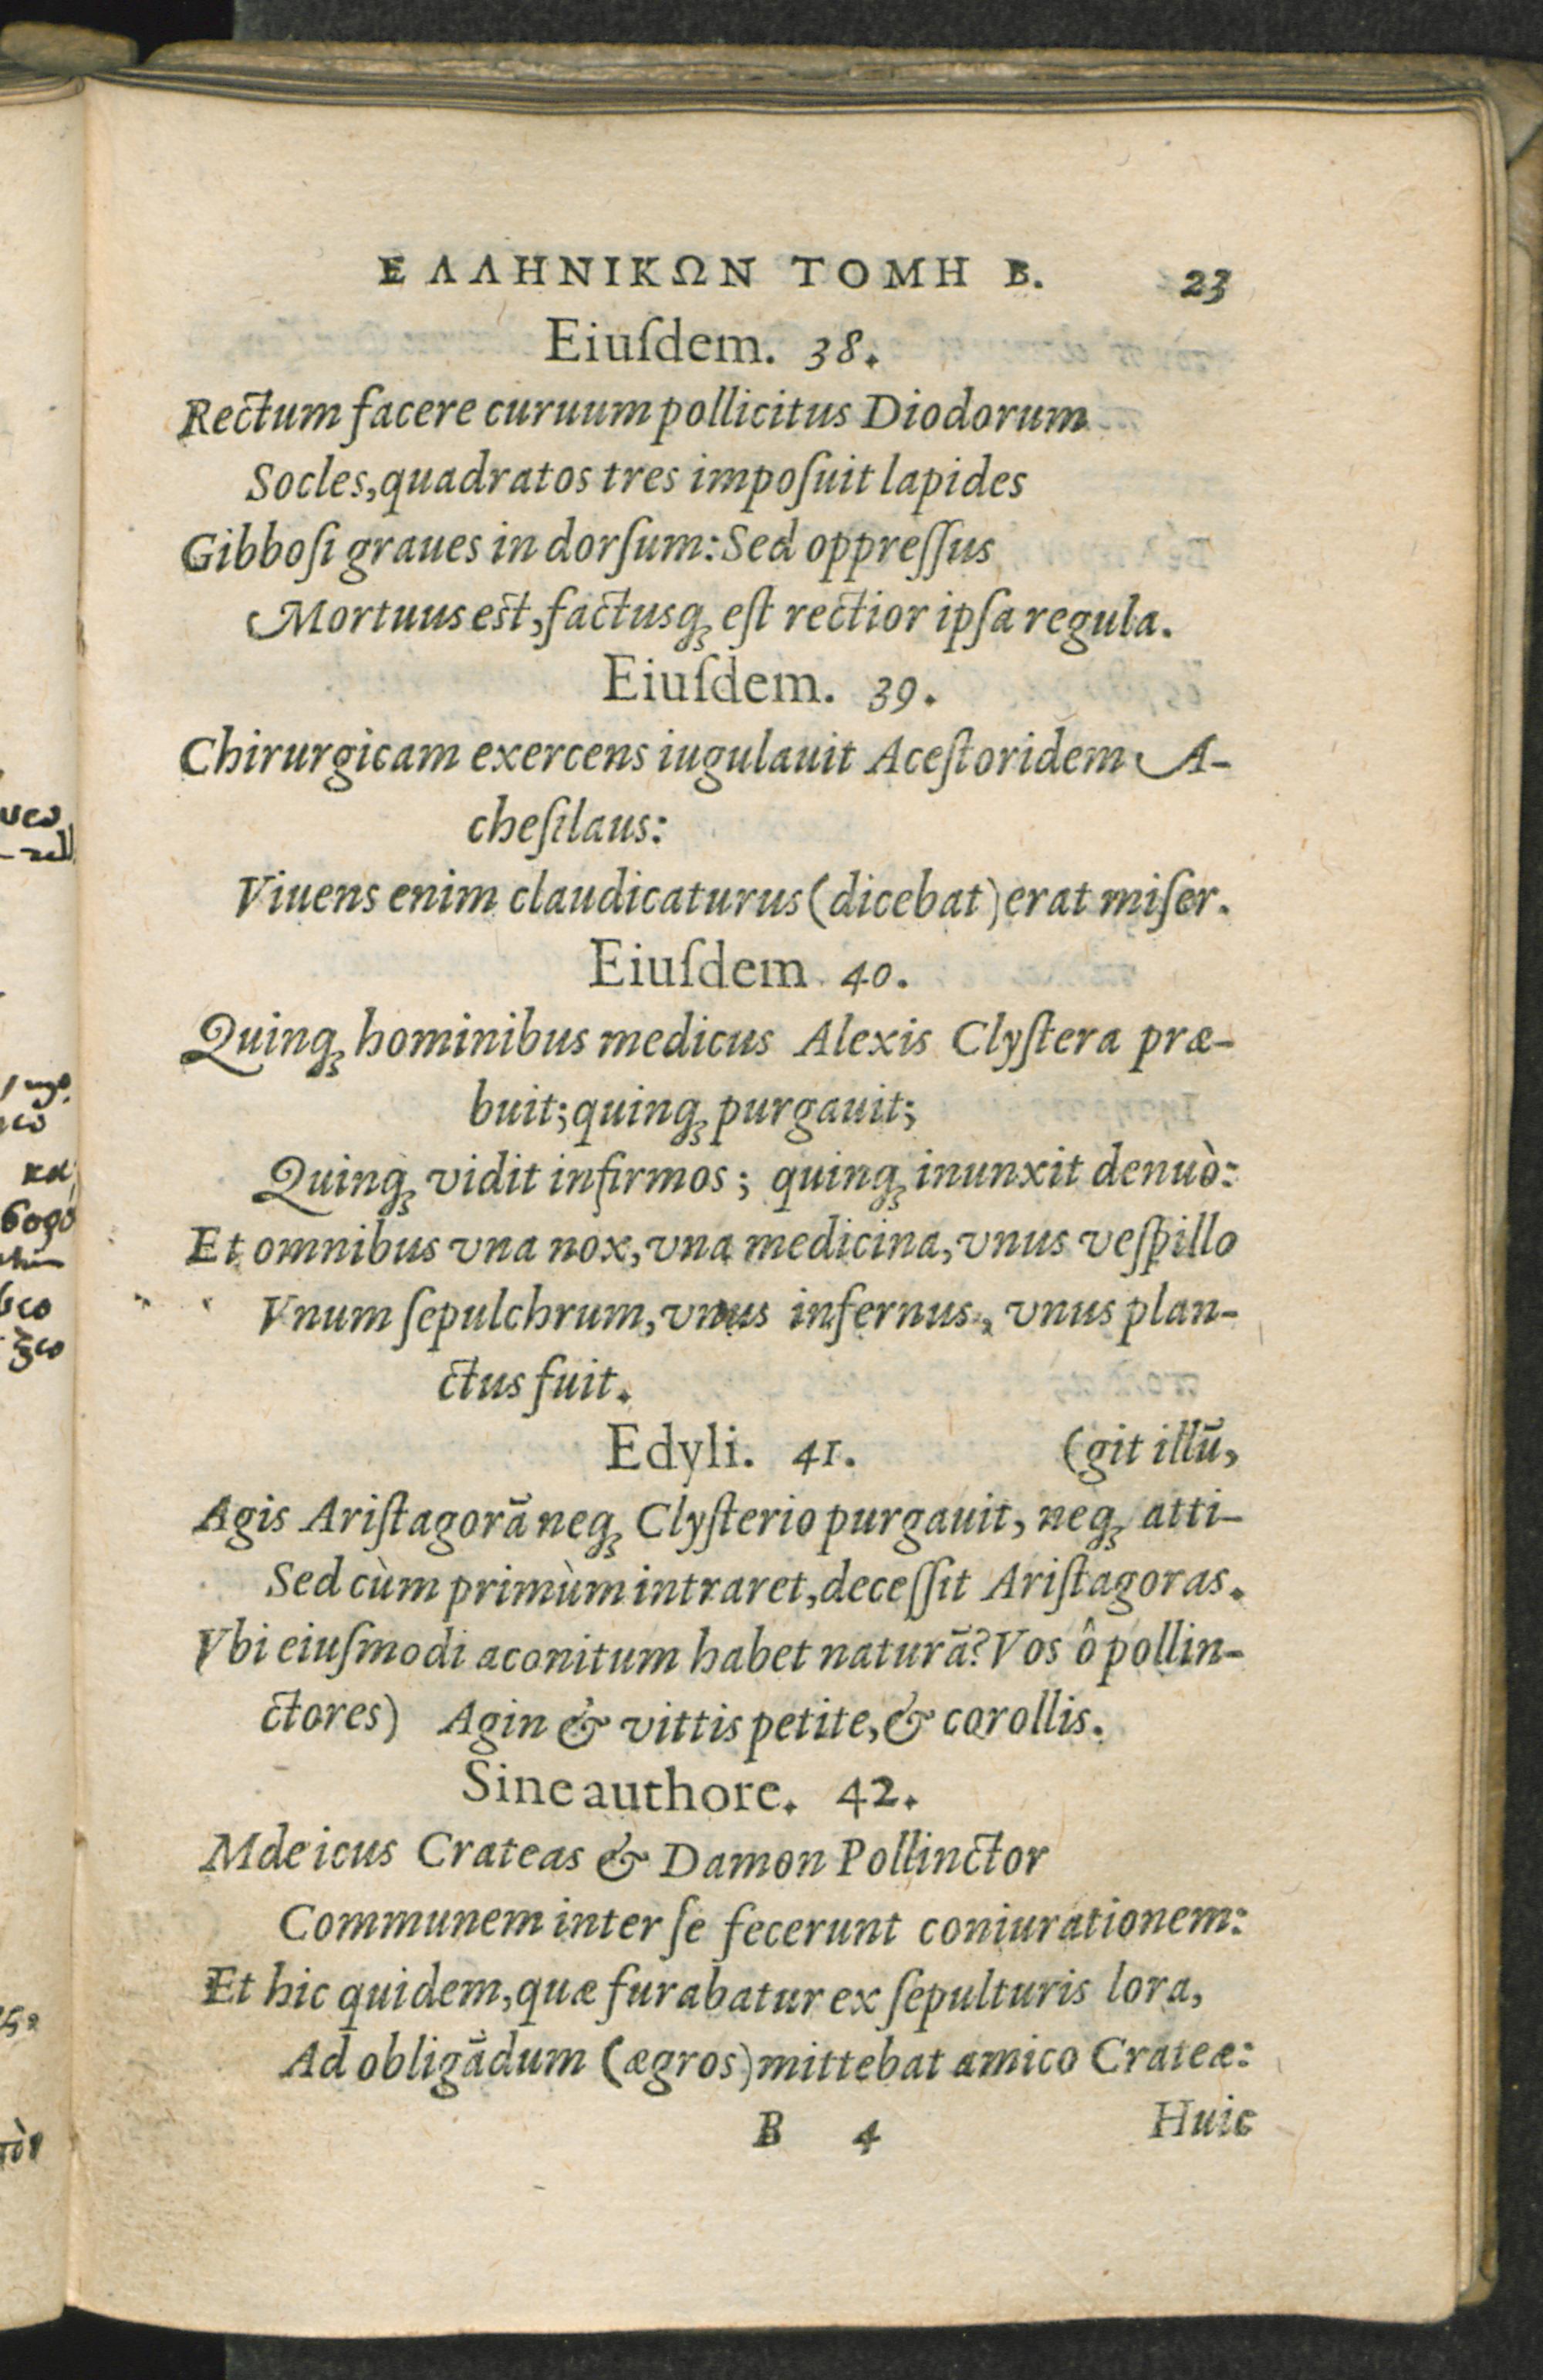 ΕΛΛΗΝΙΚΩΝ ΤΟΜΗ Β. 23
Eiuſdem. 38.
Rectum facere curuum pollicitus Diodorum
Socles, quadratos tres impoſuit lapides
Gibboſi graues in dorſum: Sed oppreſſus
Mortuus est, factusq; eſt rectior ipſa regula.
Eiuſdem. 39.
Chirurgicam exercens iugulauit Aceſtoridem A-
cheſilaus:
Viuens enim claudicaturus (dicebat) erat miſer.
Eiuſdem 40.
Quinq; hominibus medicus Alexis Clyſtera præ-
buit; quinq; purgauit;
Quinq; vidit infirmos; quinq; inunxit denuò:
Et omnibus vna nox, vna medicina, vnus veſpillo
Vnum ſepulchrum, vnus infernus, vnus plan-
ctus fuit.
Edyli. 41. (git illū,
Agis Ariſtagorā neq; Clyſterio purgauit, neq; atti-
Sed cùm primùm intraret, deceſſit Ariſtagoras.
Vbi eiuſmodi aconitum habet naturā? Vos ô pollin-
ctores) Agin & vittis petite, & corollis.
Sine authore. 42.
Mdeicus Crateas & Damon Pollinctor
Communem inter ſe fecerunt coniurationem:
Et hic quidem, quæ furabatur ex ſepulturis lora,
Ad obligādum (ægros) mittebat amico Crateæ:
B 4 Huic